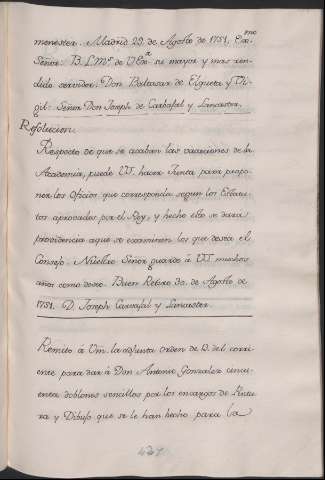 menester. Madrid 29. de Agosto de 1751. Exmo
Señor: B. L. Mº. de V. Exª su mayor y mas ren-
dido servidor. Don Baltasar de Elgueta y Vi-
gil: Señor Don Joseph de Carbajal y Lancaster.
Resolucion.
Respecto de que se acaban las vacaciones de la
Academia, puede VS. hacer Junta para propo-
ner los Oficios que corresponda segun los Estatu-
tos aprovados por el Rey; y hecho esto se dara
providencia aque se examinen los que desea el
Consejo. Nuestro Señor guarde à VS muchos
años como deseo. Buen Retiro 30. de Agosto de
1751. D. Joseph Carvajal y Lancaster.
Remito à Vm. la adjunta orden de D. del corri-
ente para dar à Don Antonio Gonzalez cincu-
enta doblones sencillos por los encargos de Pintu-
ra y Dibujo que se le han hecho para la